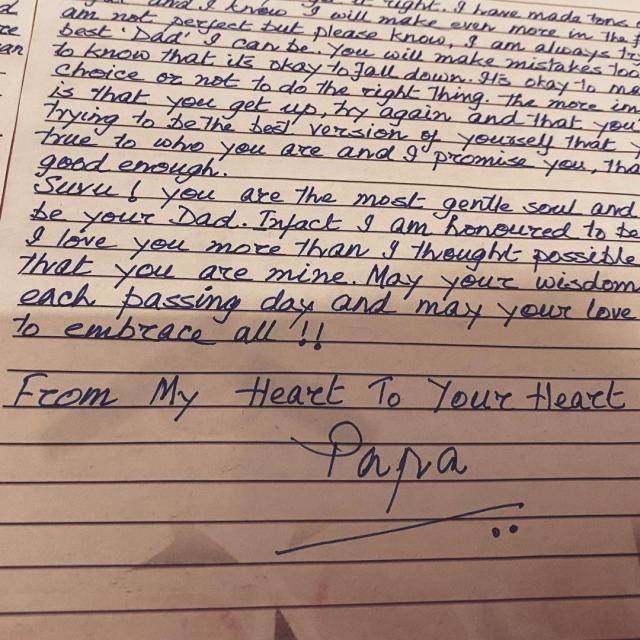 and I know I will make even more in the
am not perfect but please know, I am always
best 'Dad' I can be. You will make mistakes too
to know that it's okay to fall down. It's okay to
choice or not to do the right thing. The more
is that you get up, try again and that you
trying to be the best version of yourself that
true to who you are and I promise you,
good enough.
Suvu! you are the most gentle soul and
be your Dad. Infact I am honoured to be
I love you more than I thought possible
that you are mine. May your wisdom
each passing day and may your love
to embrace all!!
From My Heart To Your Heart
Papa